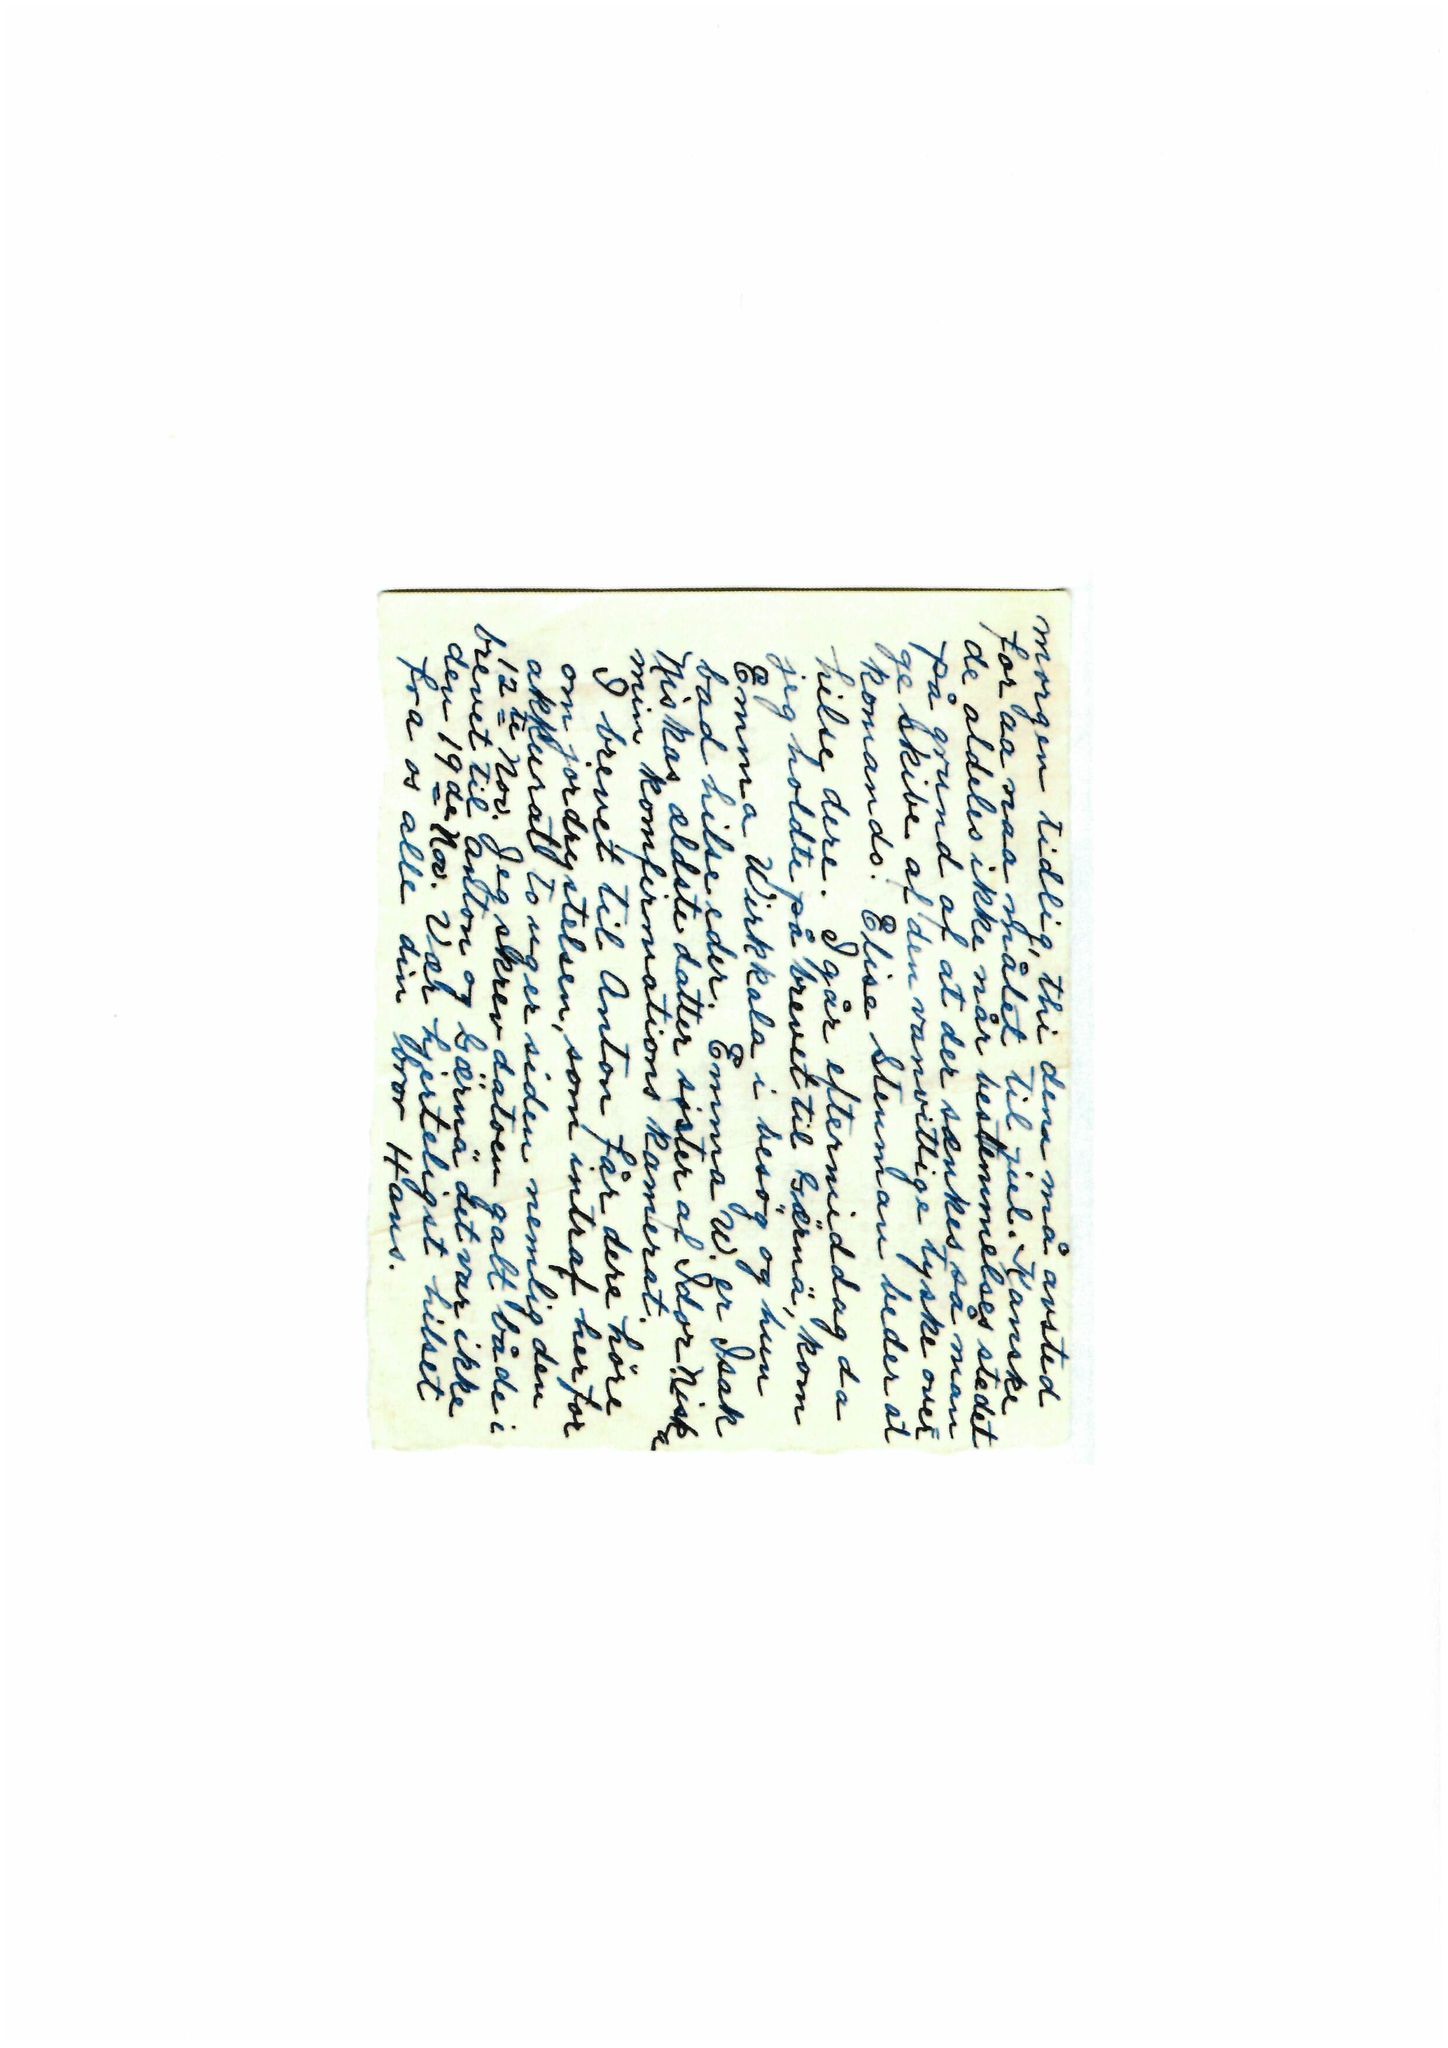 morgen tidlig, thi dem må avsted
for aa naa målet til jul. Kanske
de aldeles ikke når bestemmelses stedet
på grund af at der sænkes så man
ge skibe af den vanvittige tyske over
komando. Elise Stenman beder at
hilse dere. I går eftermiddag da
jeg holdte på brevet til Gärnä, kom
Emma Wirkkala i besög og hun
bad hilse eder. Emma W. er Isak
Niskas ældste datter sister af Idor Niska
min komfirmations kamerat.
I brevet til Anton får dere höre
om jordrystelsen, som intraf her for
akkurat to uger siden nemlig den
12te Nov. Jeg skrev datoen galt både i
brevet til Anton og Gärnä det var ikke
den 19de Nov. Vær hjerteligst hilset
fra os alle din bror Hans.